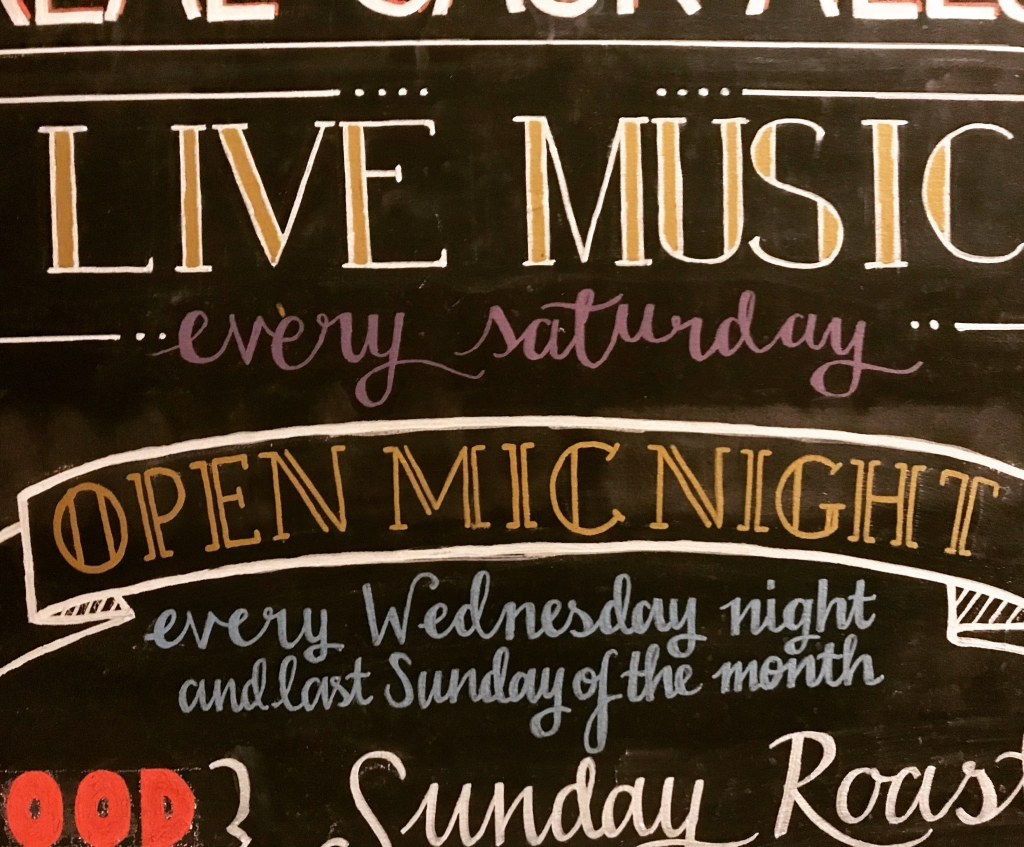 REAL CASK ALES
LIVE MUSIC
every saturday
OPEN MIC NIGHT
every Wednesday night
and last Sunday of the month
OOD } Sunday Roast